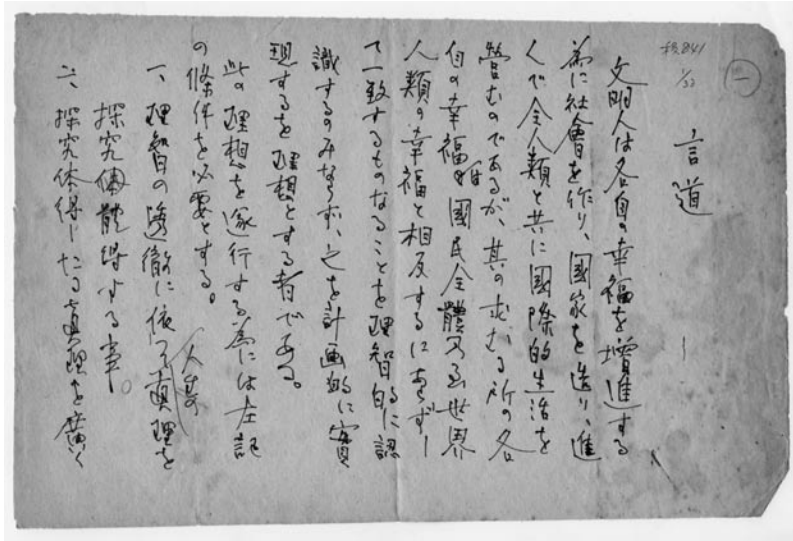 一
841
1/33
言道
文明人は各自の幸福を増進する
為に社會を作り、國家を造り、進
んで全人類と共に國際的生活を
営むのであるが、其の求むる所の各
自の幸福は國民全體乃至世界
人類の幸福と相反するにあらずー
て一致するものなることを理智的に認
識するのみならず、之を計画的に實
現するを理想とする者である。
此の理想を遂行する為には左記
の條件を必要とする。
一、理智の透徹に依つて真理を
探究體得する事。
二、探究体得したる真理を廣く